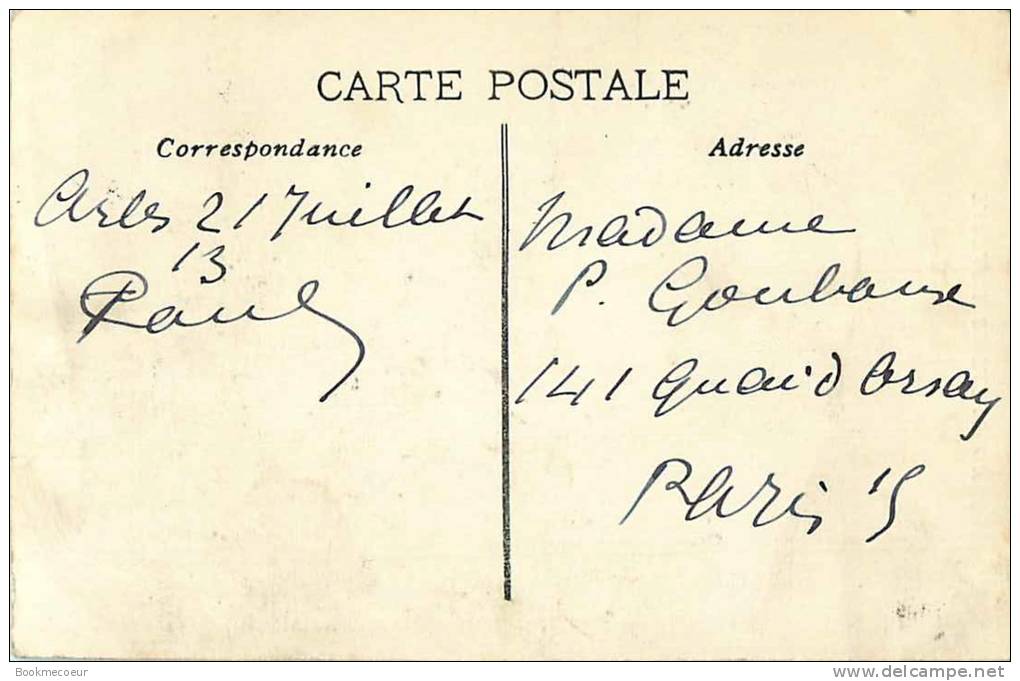 CARTE POSTALE
Correspondance
Arles 21 Juillet
13
Paul
Adresse
Madame
P. Goubaux
141 Quai d Orsay
Paris 15
Bookmecoeur
delcampe.net